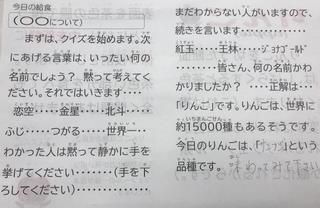 今日の給食
(〇〇について)
まずは、クイズを始めます。次
にあげる言葉は、いったい何の
名前でしょう？ 黙って考えてく
ださい。それではいきます……
恋空……金星……北斗……
ふじ……つがる……世界一…
わかった人は黙って静かに手を
挙げてください………(手を下
ろしてください)………………
まだわからない人がいますので、
続きを言います………………
紅玉……王林……ｼﾞｮﾅｺﾞｰﾙﾄﾞ
………皆さん、何の名前かわ
かりましたか？ ……正解は…
「りんご」です。りんごは、世界に
約15000種もあるそうです。
今日のりんごは、「」という
品種です。